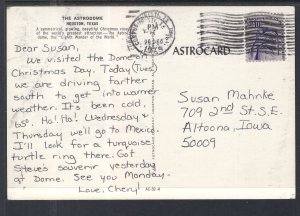 THE ASTRODOME
HOUSTON, TEXAS
A symmetrical, graceful, beautiful
dome, the "Eighth Wonder of the World."
Dear Susan,
We visited the Dome on
Christmas Day. Today (Tues)
we are driving farther
south to get into warmer
weather. It's been cold.
65°. Ho! Ho! Wednesday &
Thursday we'll go to Mexico.
I'll look for a turquoise
turtle ring there. Got
Steve's souvenir yesterday
at Dome. See you Monday.
Love, Cheryl
PM
ASTROCARD
Susan Mahnke
709 2nd St. S.E.
Altoona, Iowa
50009